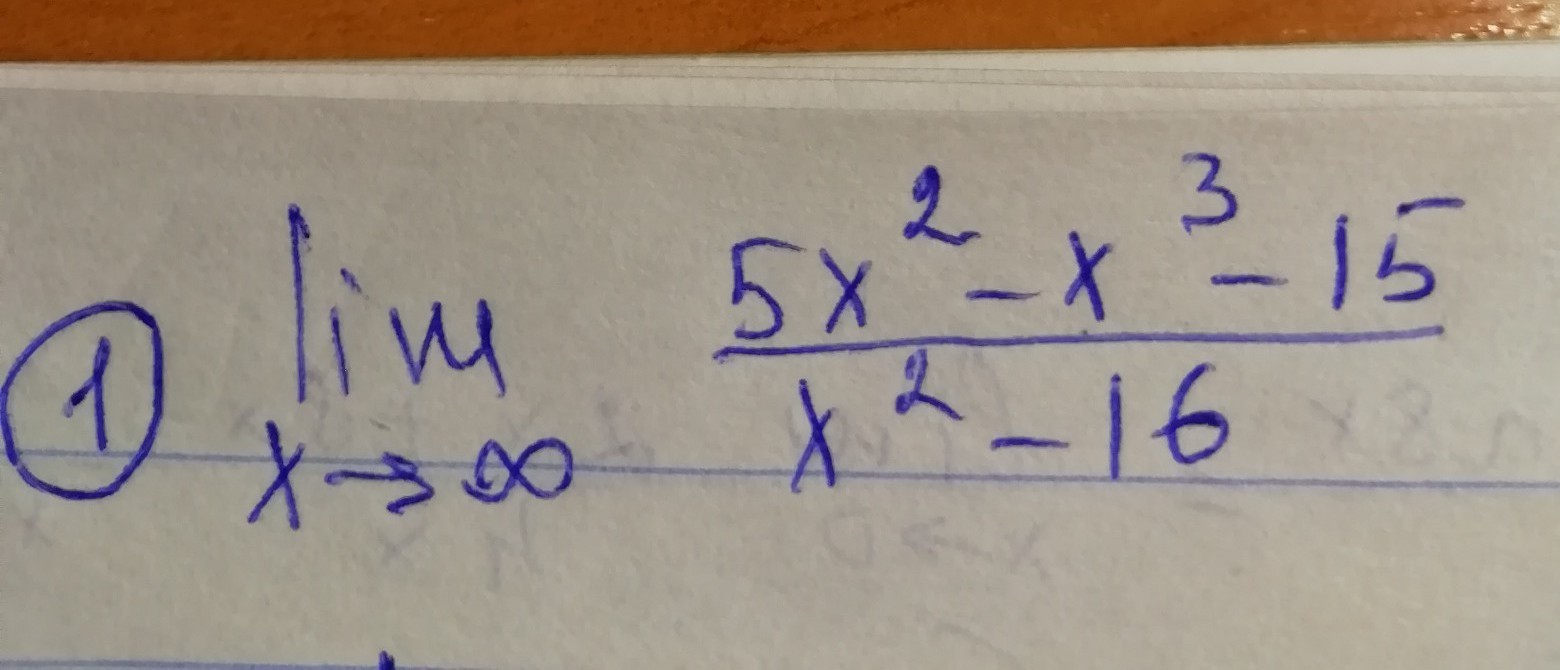 ① lim x→∞ (5x² - x³ - 15)/(x² - 16)